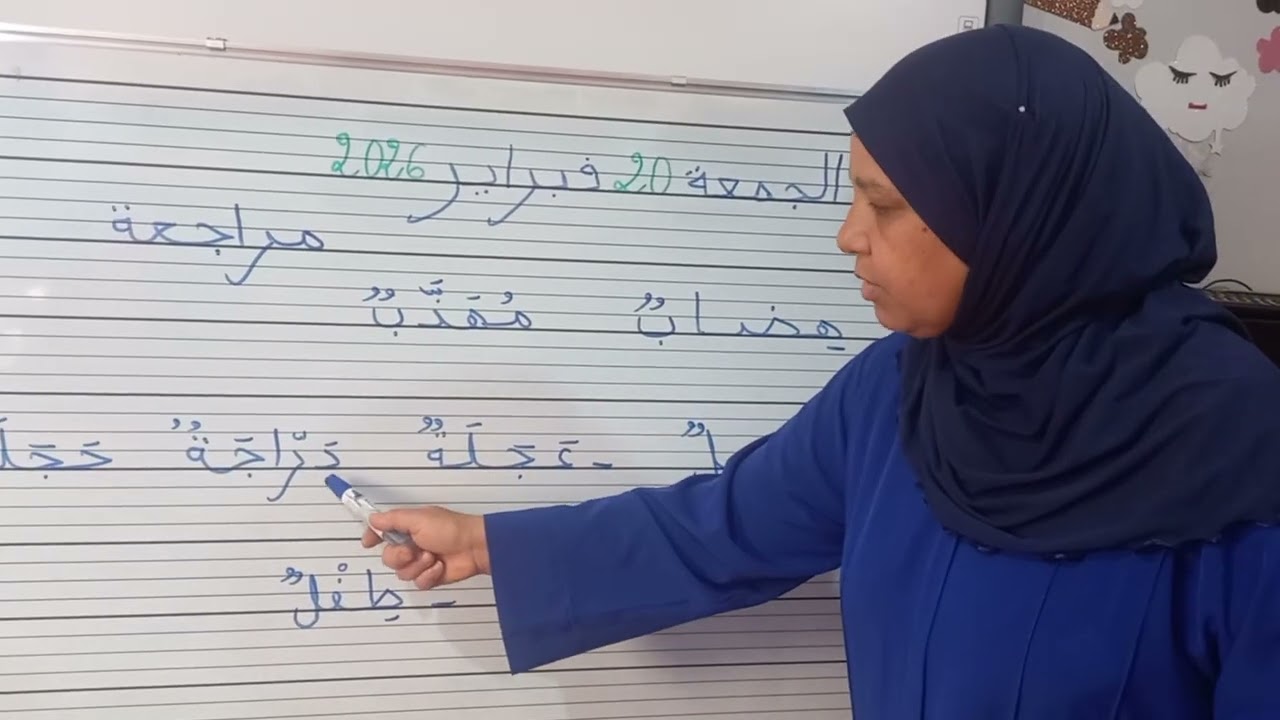 الجمعة 20 فبراير 2026
مراجعة
هِضابٌ مُهَذَّبٌ
- عَجَلَةٌ دَرّاجَةٌ
- طِفْلٌ